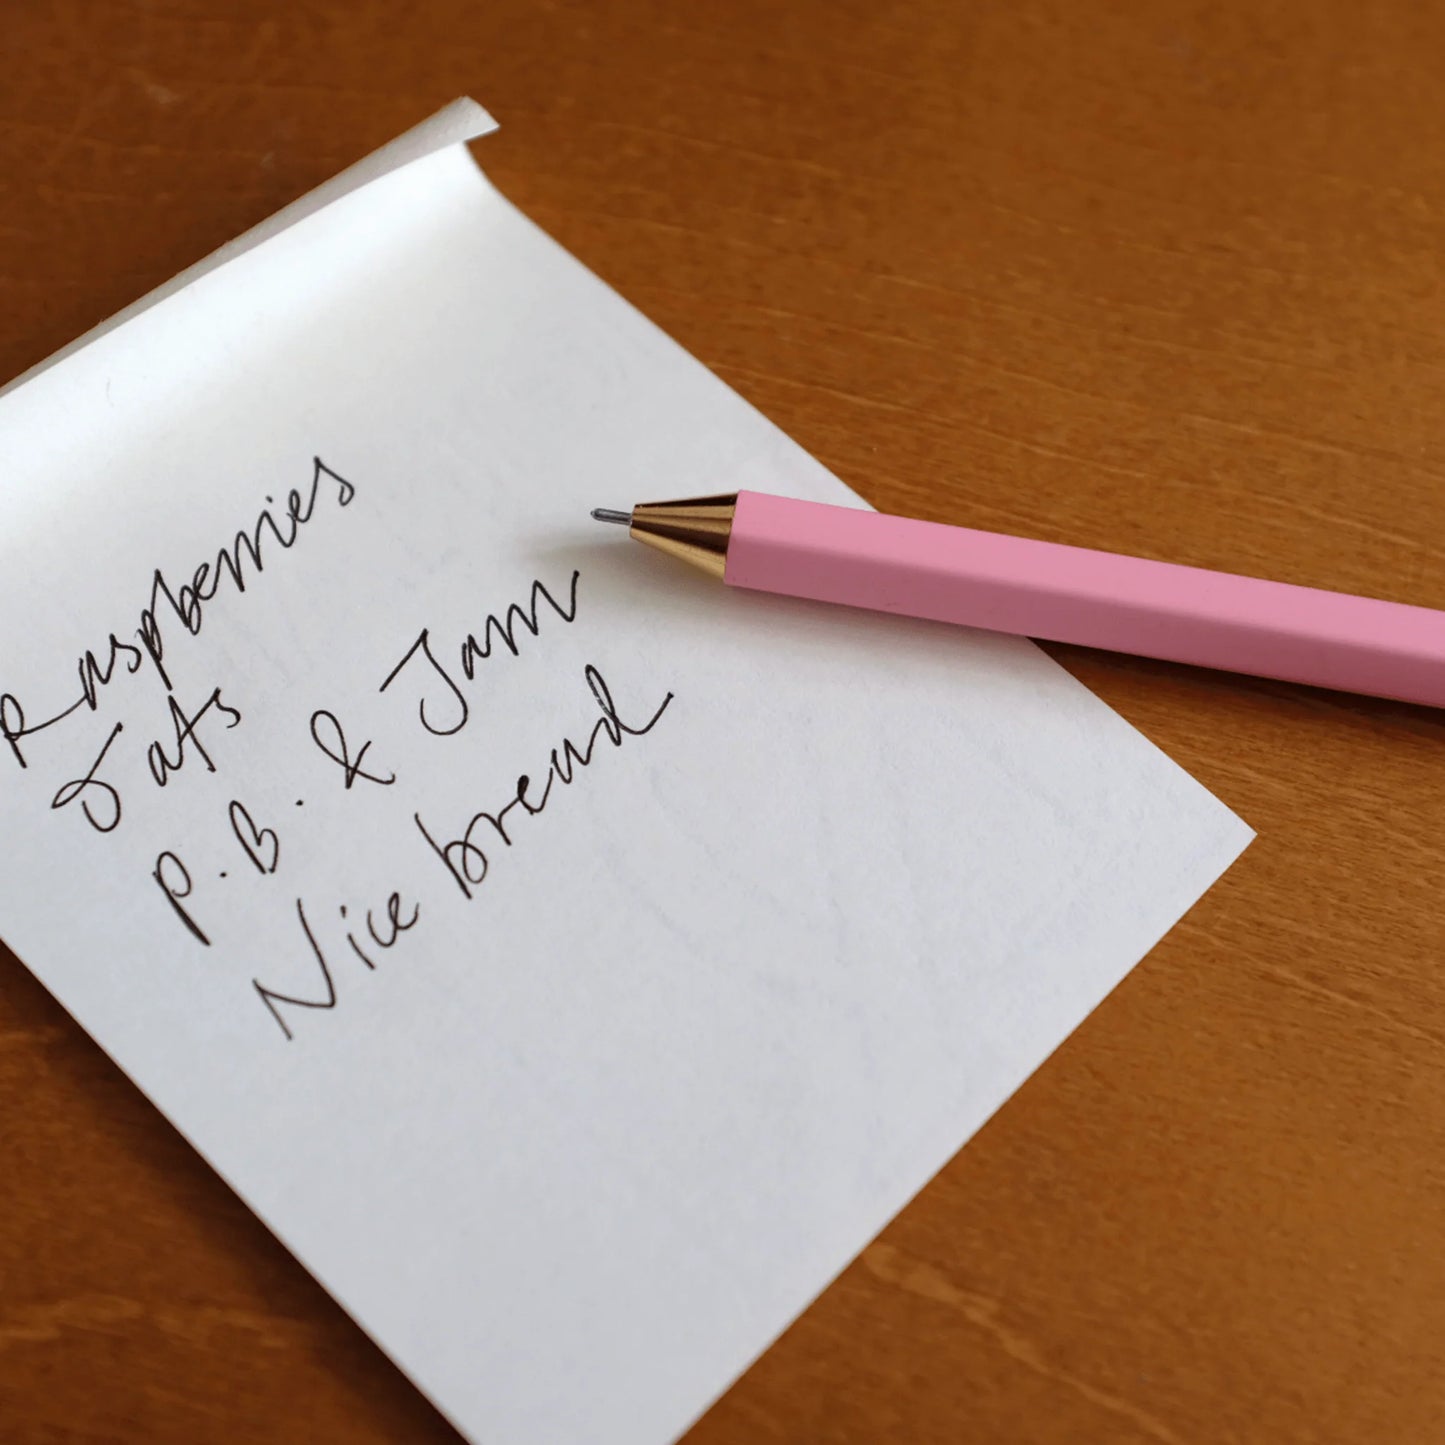 Raspberries
Oats
P.B. & Jam
Nice bread